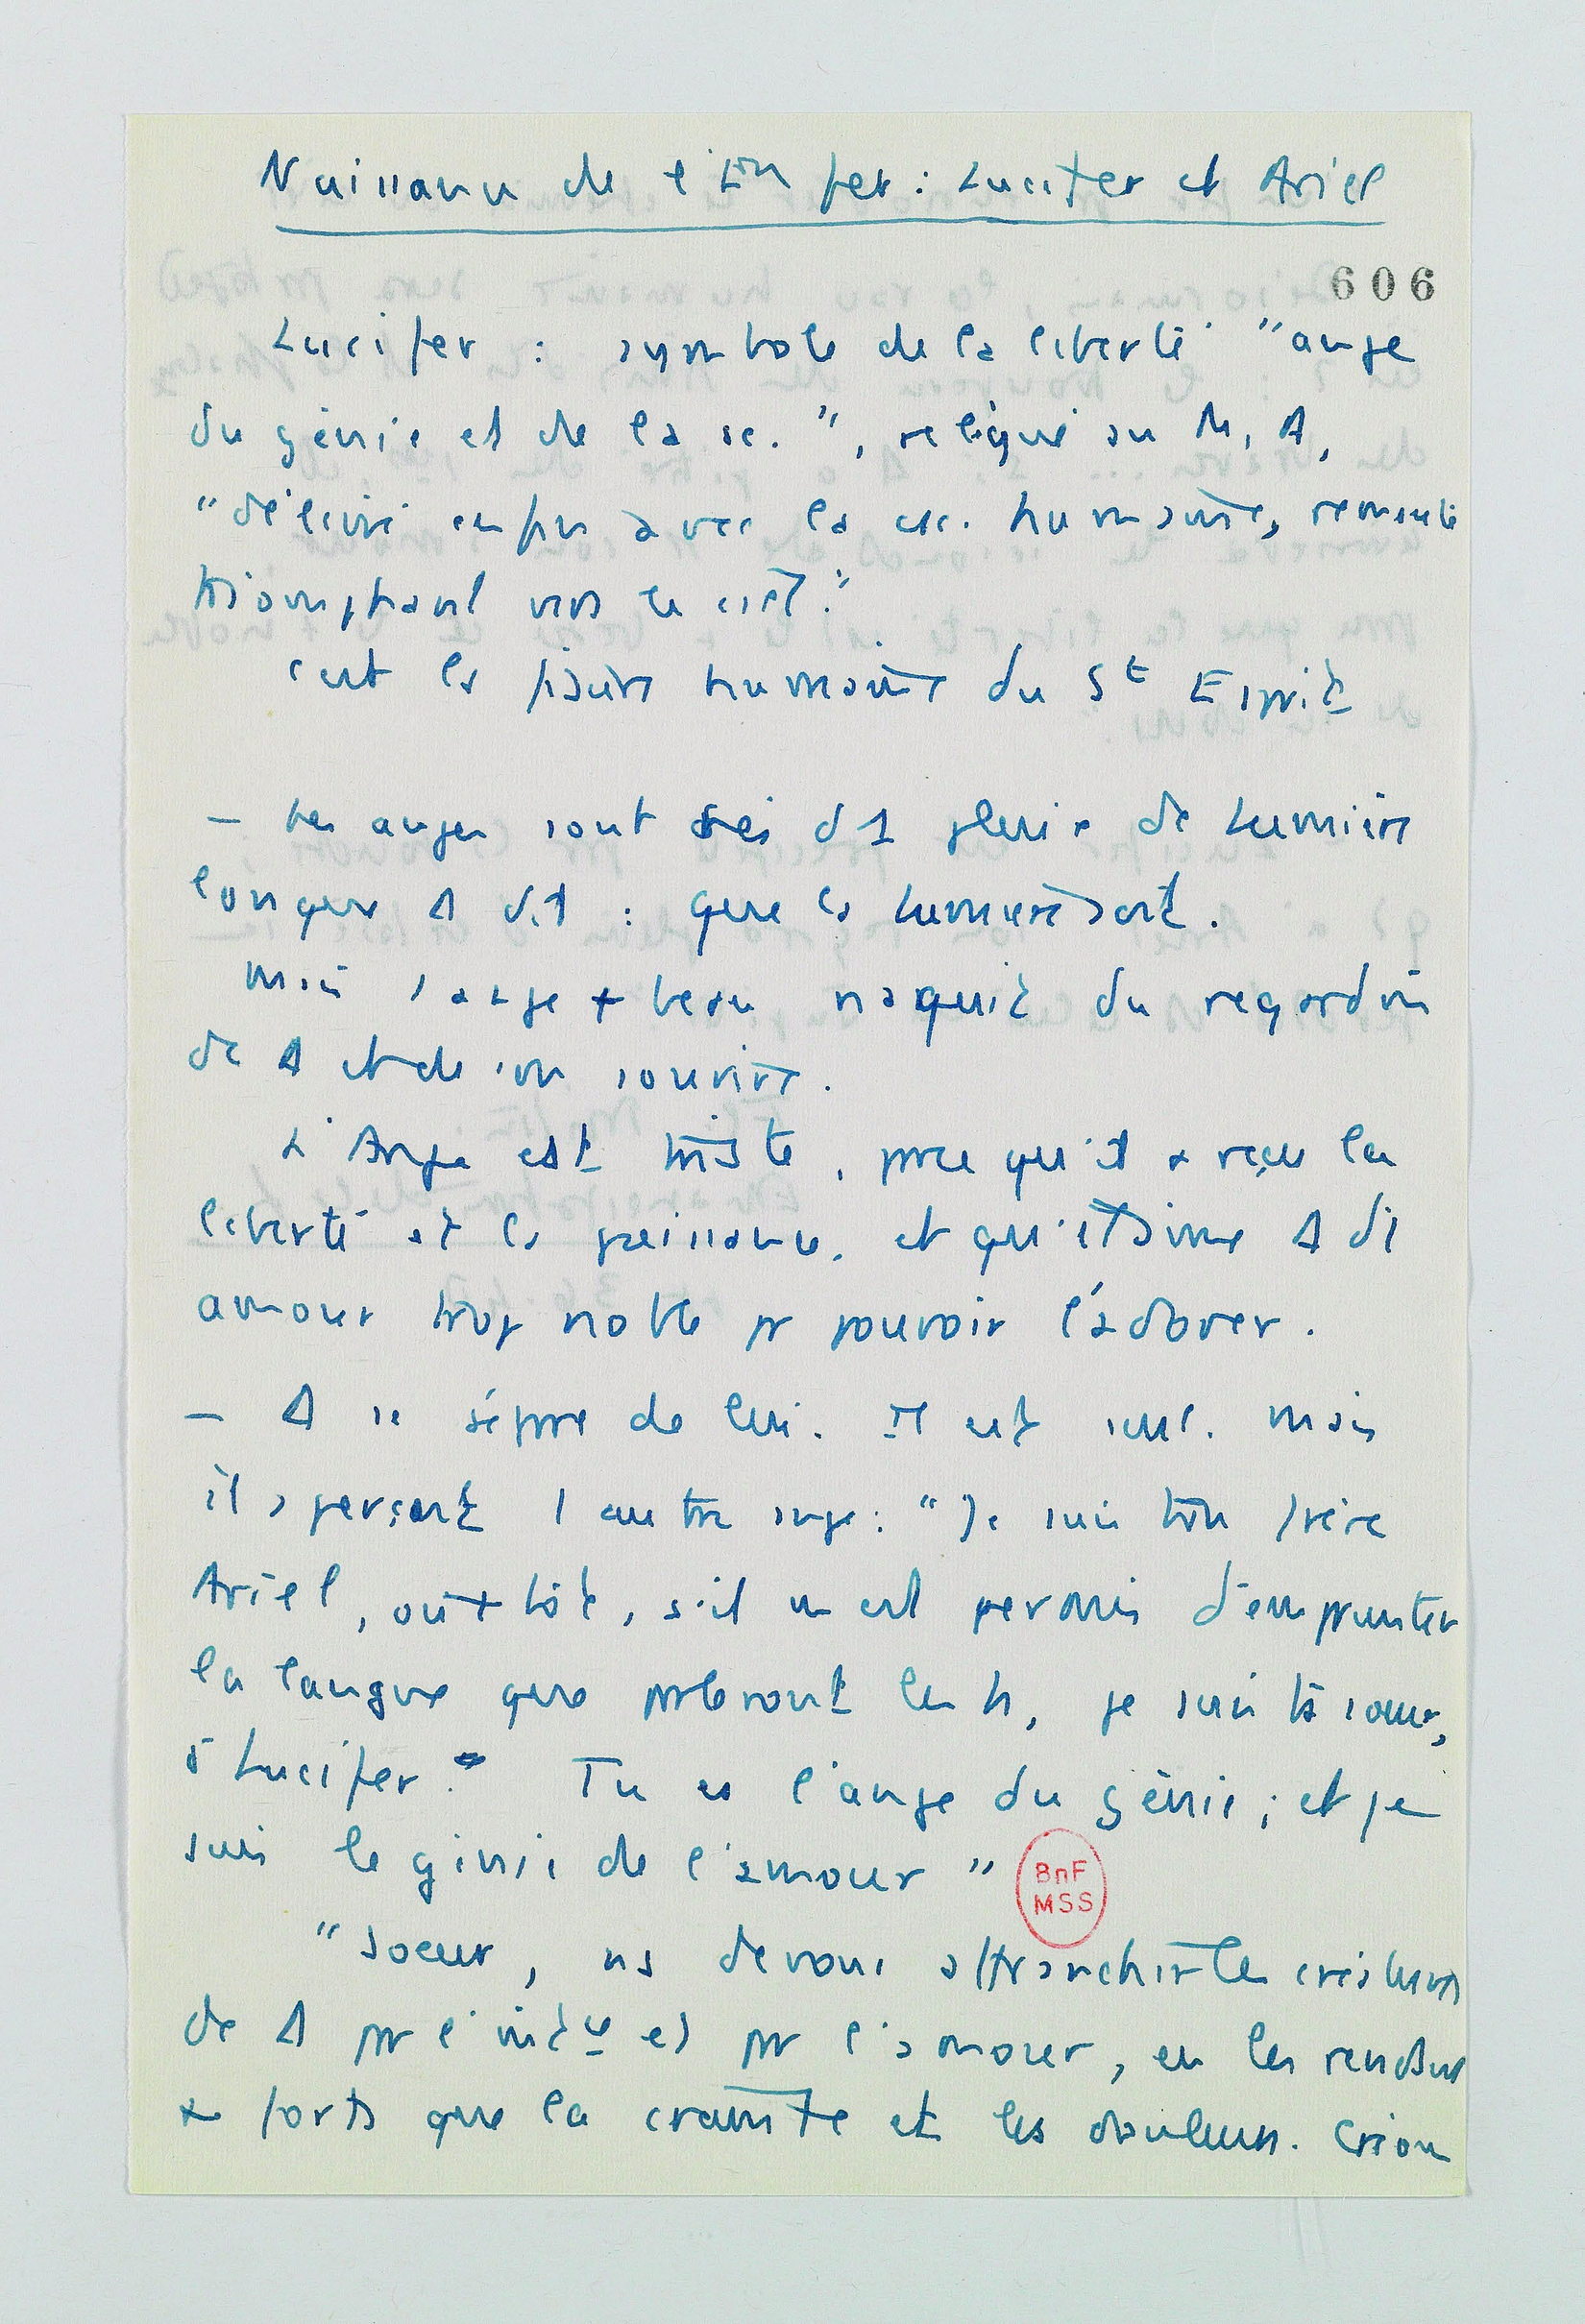 Naissance de l'Enfer : Lucifer et Ariel
606
Lucifer : symbole de la liberté "ange
du génie et de la sc.", relégué au M. A,
"délivré enfin avec la csc. humaine, remonte
triomphant vers le ciel."
c'est la figure humaine du St Esprit
– Les anges sont nés d 1 pluie de Lumière
lorsque Δ dit : que la Lumière soit.
Mais l'ange + beau naquit du regard
de Δ et de son sourire.
L'Ange est triste, parce qu'il a reçu la
liberté et la puissance, et qu'il aime Δ d'1
amour trop noble pr pouvoir l'adorer.
– Δ se sépare de lui. Il est seul. Mais
il aperçoit 1 autre ange : "Je suis ton frère
Ariel, ou + tôt, s'il m'est permis d'emprunter
la langue que parleront les h, je suis ta soeur,
ô Lucifer. Tu es l'ange du génie ; et je
suis le génie de l'amour"
BnF
MSS
"Soeur, ns devons affranchir les créatures
de Δ pr l' et pr l'amour, en les rendant
+ forts que la crainte et les douleurs. Créons